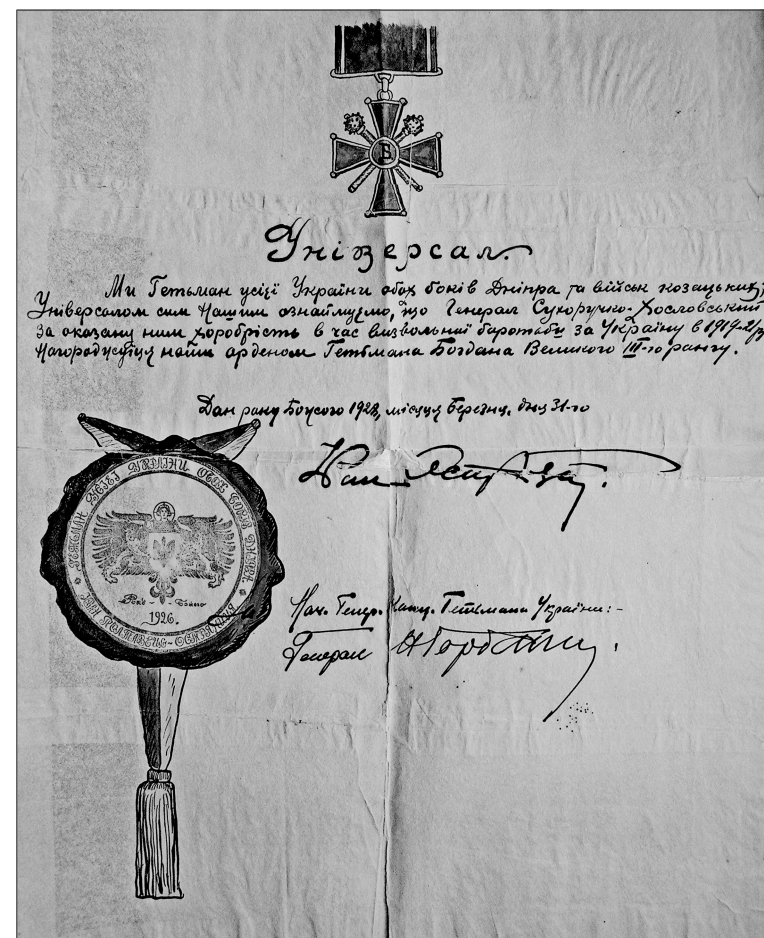 Б
Універсал.
Ми Гетьман усієї України обох боків Дніпра та військ козацьких,
Універсалом сим Нашим ознаймуємо, що Генерал Сукоручко-Хословський
за оказану ним хоробрість в час визвольної боротьби за Україну в 1919-21 р
Нагороджується найш орденом Гетьмана Богдана Великого III-го рангу.
Дан року Божого 1928, місяця березня, дня 31-го
Іван Полтавець-Остряниця
1926.
Нач. Генер. Канц. Гетьмана України:-
Генерал